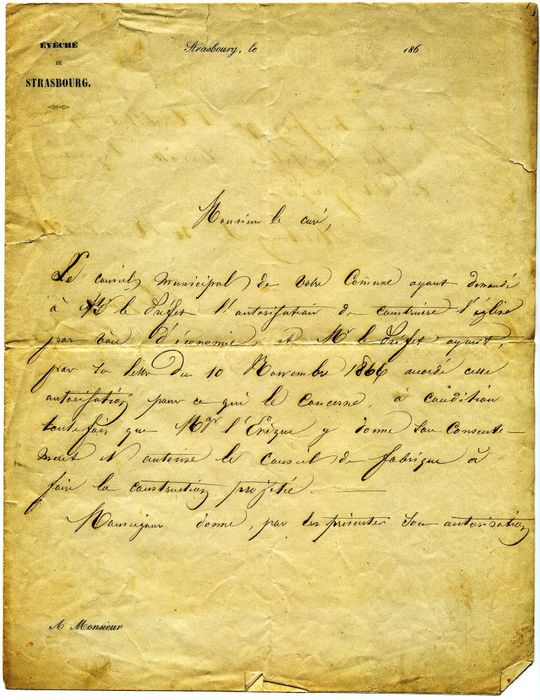 ÉVÊCHÉ
DE
STRASBOURG.
Strasbourg, le 186
Monsieur le curé,
Le conseil municipal de votre Commune ayant demandé
à Mr le Préfet l'autorisation de construire l'église
par voie d'économie, et Mr le Préfet ayant,
par sa lettre du 10 Novembre 1866 accordé cette
autorisation pour ce qui le concerne, à condition
toutefois que Mgr l'Evêque y donne son consente-
ment et autorise le Conseil de fabrique à
faire la construction projetée.
Monseigneur donne, par les présentes son autorisation
A Monsieur